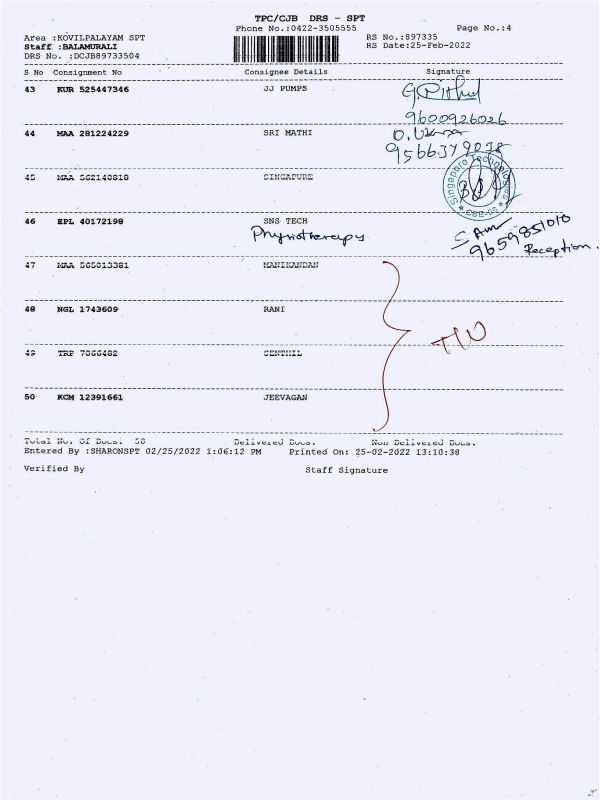 TPC/CJB DRS - SPT
Phone No.:0422-3505555 Page No.:4
Area :KOVILPALAYAM SPT RS No.:897335
Staff :BALAMURALI RS Date:25-Feb-2022
DRS No. :DCJB89733504
S No Consignment No Consignee Details Signature
43 KUR 525447346 JJ PUMPS
9600926026
44 MAA 281224229 SRI MATHI
9566379038
45 MAA 562140818 SINGAPURE
Singapore Technologies
CBE-05
46 EPL 40172198 SNS TECH
Physiotherapy
9659851010
Reception.
47 MAA 565013381 MANIKANDAN
48 NGL 1743609 RANI
49 TRP 7066482 SENTHIL
50 KCM 12391661 JEEVAGAN
Total No. Of Docs. 50 Delivered Docs. Non Delivered Docs.
Entered By :SHARONSPT 02/25/2022 1:06:12 PM Printed On: 25-02-2022 13:10:38
Verified By Staff Signature